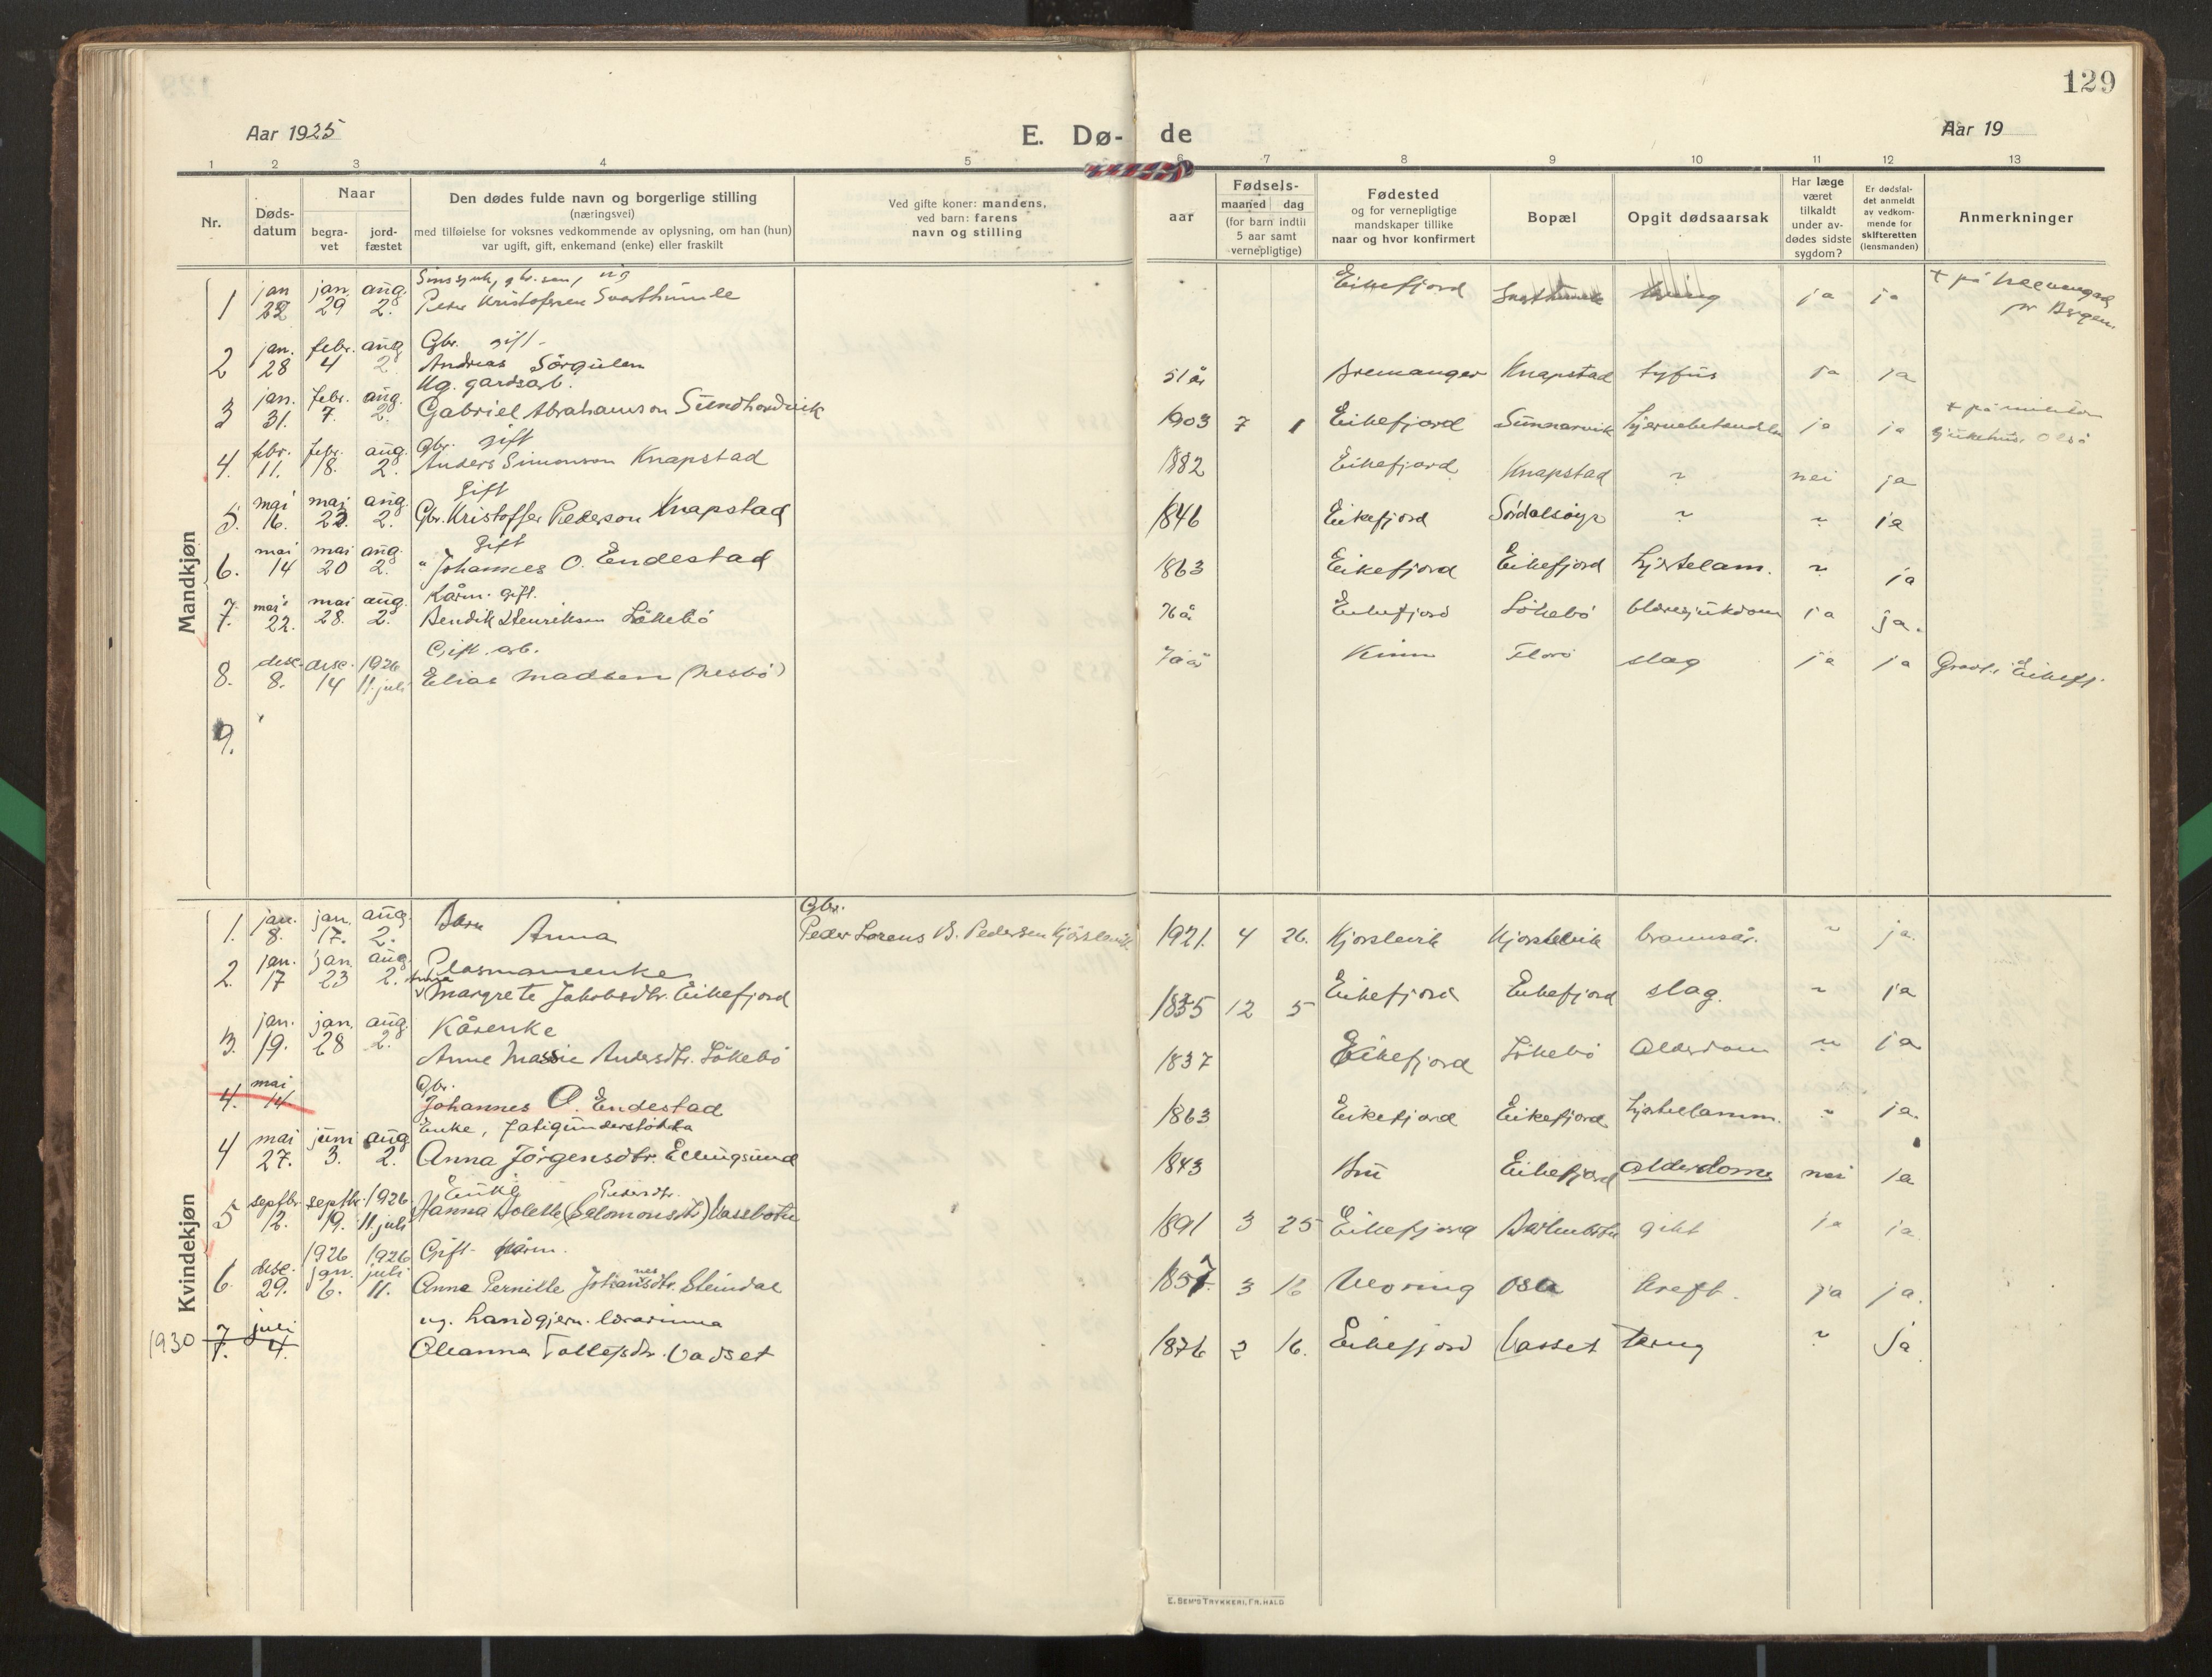 129
Aar 1925
E. Dø-
de
Aar 19
1 2 3 4 5 6 7 8 9 10 11 12 13
Nr.
Døds-
datum
Naar
begra-
vet
jord-
fæstet
Den dødes fulde navn og borgerlige stilling
(næringsvei)
med tilføielse for voksnes vedkommende av oplysning, om han (hun)
var ugift, gift, enkemand (enke) eller fraskilt
Ved gifte koner: mandens,
ved barn: farens
navn og stilling
Fødsels-
aar
maaned dag
(for barn indtil
5 aar samt
vernepligtige)
Fødested
og for vernepligtige
mandskaper tillike
naar og hvor konfirmert
Bopæl
Opgit dødsaarsak
Har læge
været
tilkaldt
under av-
dødes sidste
sygdom?
Er dødsfal-
det anmeldt
av vedkom-
mende for
skifteretten
(lensmanden)
Anmerkninger
Mandkjøn
Sinssjuk, gbr. søn, ug
1 jan 22 jan. 29 aug. 2. Peter Kristofersen Svarthumle Eikefjord ja ja + på Neevengard
pr Bergen.
Gbr. gift
2 jan. 28 febr. 4 aug 2. Andreas Sørgulen 51 år Bremanger Knapstad tyfus ja ja
Ug. gardsarb.
3 jan. 31. febr. 7. aug. 2. Gabriel Abrahamson Sundhordvik 1903 7 1 Eikefjord Sunnarvik ja ja + på militær
sjukehus. Oslo
Gbr. gift
4. febr. 11. febr. 18. aug. 2. Anders Simonson Knapstad 1882 Eikefjord Knapstad " nei ja
Gift
5. mai 16. mai 23. aug. 2. Gbr. Kristoffer Pederson Knapstad 1846 Eikefjord " " ja
Gift
6. mai 14 mai 20 aug. 2. " Johannes O. Endestad 1863 Eikefjord Eikefjord hjertelam. " ja
Kårm. gift.
7. mai 22. mai 28. aug. 2. Bendik Henrikson Løkebø 76 år Eikefjord Løkebø blæresjukdom ja ja.
Gift arb.
8. dese. 8. dese. 14 1926 11. juli Elias Madsen (Nesbø) Kinn Florø slag ja ja Gravl. i Eikefj.
9.
Kvindekjøn
Gbr.
1. jan. 8. jan. 17. aug. 2. Barn Anna Peder Lorens B. Pedersen Kjørslevik 1921. 4 26. Kjørslevik Kjørslevik brannsår. " ja.
Plasmansenke
2. jan. 17 jan 23 aug. 2. Anna Margrete Jakobsdtr. Eikefjord 1835 12 5 Eikefjord Eikefjord slag. " ja
Kårenke
3. jan. 19. jan. 28 aug. 2. Anne Marie Andersdtr. Løkebø 1837 Eikefjord Løkebø Alderdom " ja
Gbr.
4. mai 14. Johannes O. Endestad 1863 Eikefjord Eikefjord hjertelamm. " ja.
Enke, fatigunderstøtta
4 mai 27. juni 3. aug 2. Anna Jørgensdtr. Ellingsund 1843 Bru Eikefjord Alderdom nei ja
Enke Pedersdtr.
5 septbr. 12. septbr. 19. 1926. 11 juli Hanna Dolette (Salomonsdtr) Vassbotn 1891 3 25 Eikefjord gikt ja ja
Gift kårm.
6. dese. 29. 1926 jan. 6. 1926 juli 11. Anna Pernille Johannesdtr. Steindal 1857 3 16 Vevring Osa kreft. ja ja.
ug. handgjern. lærarinna
1930 7. juli 4. Oleanna Tollefsdtr. Vadset 1876 2 16. Eikefjord Vasset tæring " ja.
E. SEM'S TRYKKERI, FR.HALD